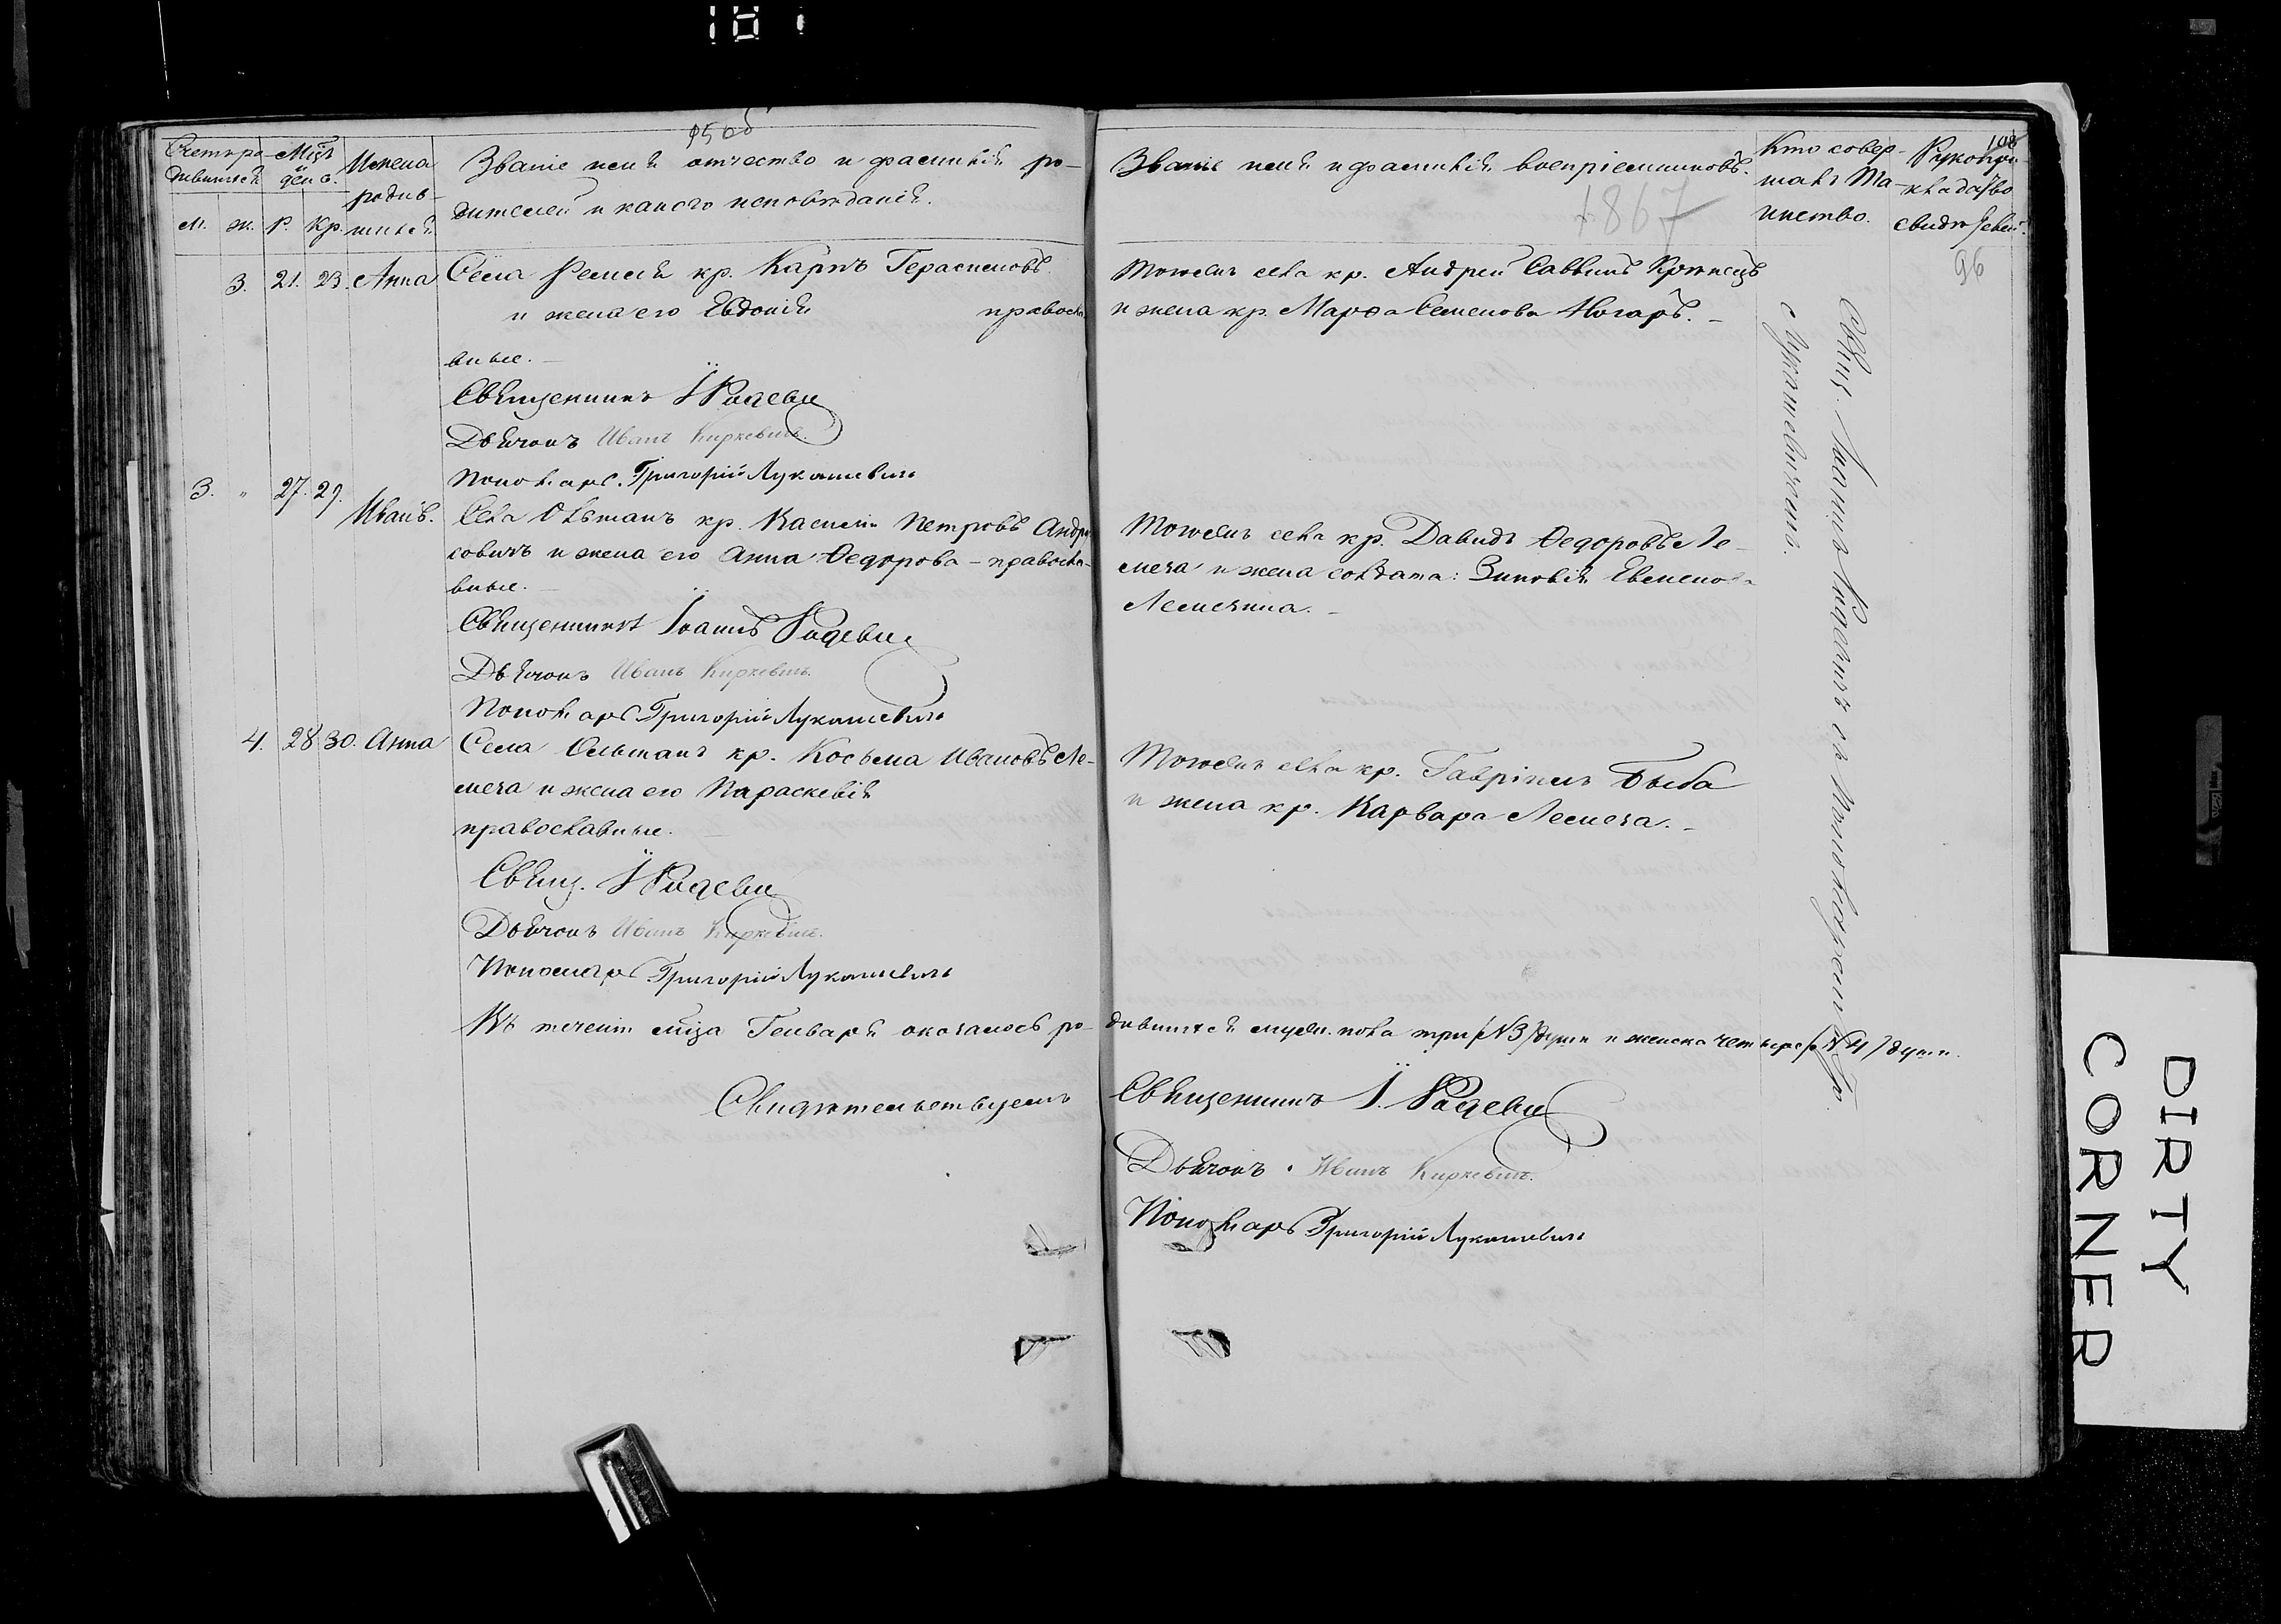 101
95 об
108
Счетъ ро-
дившихся
Мцъ
день.
Имена
родив-
шихся
Званіе имя отчество и фамилія ро-
дителей и какого исповѣданія.
м. ж. р. кр.
Званіе имя и фамилія воспріемниковъ.
1867
Кто совер-
шалъ Та-
инство.
Рукопри-
кладство
свидѣтелей.
96
3. 21. 23. Анна
Села Ремля кр. Карпъ Герасимовъ
и жена его Евдокія правосла-
вные. —
Священникъ І Радевич
Дьячокъ Иванъ Киркевичъ.
Пономарь Григорій Лукашевичъ
Тогожъ села кр. Андрей Саввинъ
и жена кр. Марѳа Семенова
3. „ 27. 29. Иванъ.
Села Ольманъ кр. Василій Петровъ Андро-
совичъ и жена его Анна Ѳедорова – правосла-
вные. —
Священникъ Іоаннъ Радевич
Дьячокъ Иванъ Киркевичъ.
Пономарь Григорій Лукашевичъ
Тогожъ села кр. Давидъ Ѳедоровъ Ле-
меча и жена солдата: Зиновія Евменова
Лемечина. –
4. 28 30. Анна
Села Ольманъ кр. Косьма Ивановъ Ле-
меча и жена его Параскевія
православные. —
Свящ. І Радевич
Дьячокъ Иванъ Киркевичъ.
Пономарь Григорій Лукашевичъ
Тогожъ села кр. Гавріилъ Быба
и жена кр. Варвара Лемеча. –
Свящ. Іоаннъ Радевичъ съ Пономаремъ Гр.
Лукашевичемъ.
Въ теченіи мца Генваря оказалось ро-
дившихся мужск. пола три /№ 3/ души и женска четыре /№ 4/ души.
Свидѣтельствуемъ
Священникъ І. Радевич
Дьячокъ Иванъ Киркевичъ.
Пономарь Григорій Лукашевичъ
DIRTY
CORNER